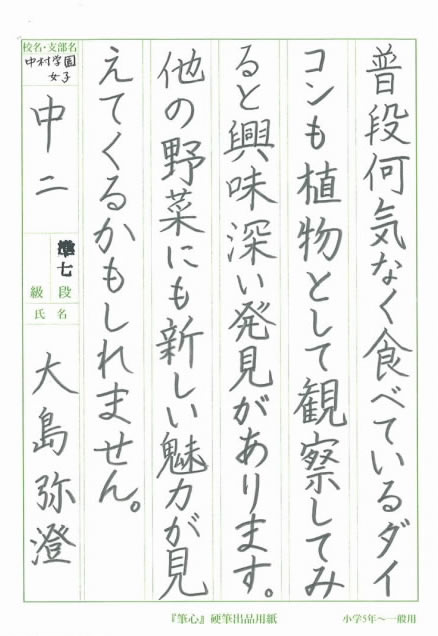 普段何気なく食べているダイ
コンも植物として観察してみ
ると興味深い発見があります。
他の野菜にも新しい魅力が見
えてくるかもしれません。
校名・支部名
中村学園
女子
中二
準七
級段
氏名
大島弥澄
『筆心』硬筆出品用紙
小学5年～一般用